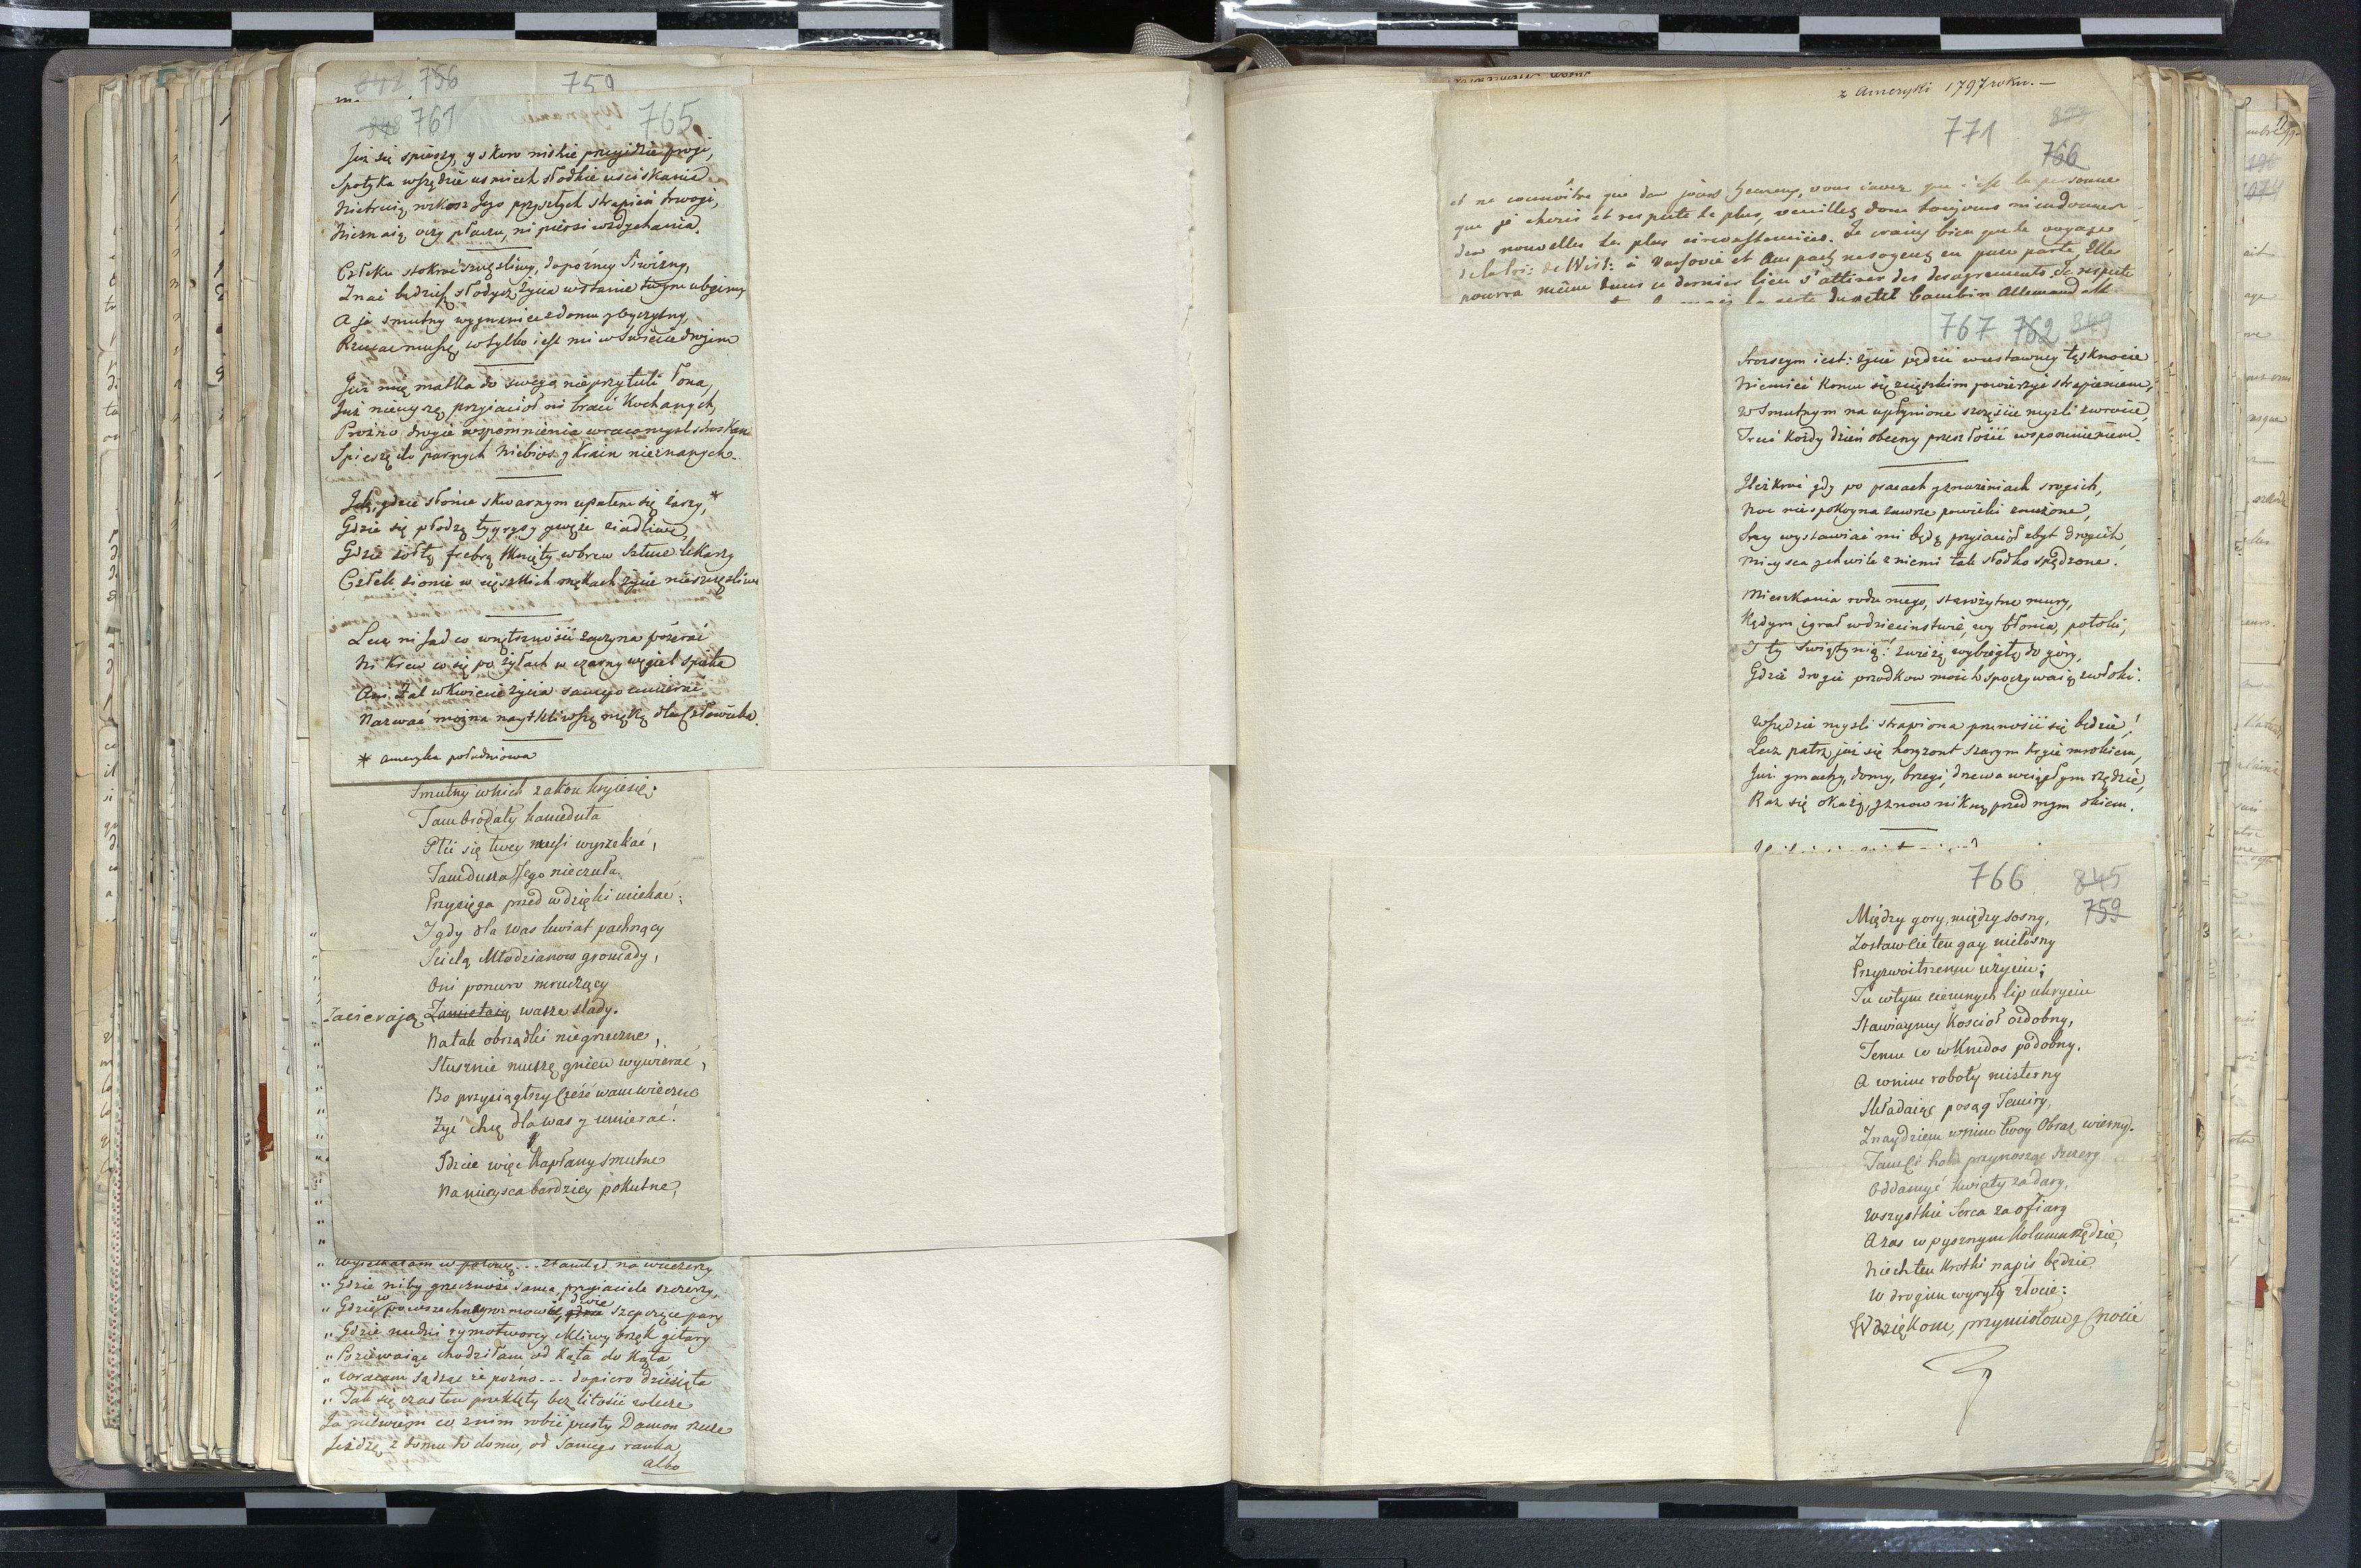 848 756
759
848 761
765
Już się spieszy, y skoro niskie przyidzie progi,
Spotyka wszędzie usmiech słodkie usciskania
Nietruią rozkosz Jego przyszłych strapień trwogi,
Nieznaią oczy płaczu, ni piersi wzdychania.
Człeku stokroć szczęsliwy, dopoźney Siwizny,
Znać będziesz słodycz życia wstanie twym ubogim
A ja smutny wygnaniec z domu y oyczyzny,
Rzucać muszę, co tylko iest mi w Swiecie drogim
Już mię matka do swego nieprzytuli łona,
Już nieuyrzę przyiacioł ni braci Kochanych,
Prożno drogie wspomnienia wraca mysl stroskana
Spieszę do parnych Niebios y Krain nieznanych.
Tam, gdzie słońce skwarnym upałem się żarzy, *
Gdzie się płodzą tygrysy y węże ziadliwe,
Gdzie żołtą febrą tknięty wbrew sztuce lekarzy
Człek zionie w cięszkich mękach życie nieszczęsliwe
Lecz ni Jad co wnętrznośći zaczyna pożerać
Ni Krew co się po żyłach w czarny węgiel spieka
Ani żal w Kwiecie życia samego umierać
Nazwać można naytkliwszą męką dla Człowieka.
* ameryka południowa
Smutny w nich zakon kryie się;
Tam brodaty kameduła
Płci się twey musi wyrzekać,
Tam dusza Jego nieczuła.
Przysięga przed wdzięki uciekać;
I gdy dla was kwiat pachnący
Scielą Młodzianow gromady,
Oni ponuro mruczący
Zacieraią Zamietaią wasze slady.
Na tak obrządki niegrzeczne,
Słusznie muszę gniew wywierać,
Bo przysiągłszy Cześć wam wieczną
Żyć chcę dla was y umierać!
Idzcie więc Kapłany smutne
Na mieysca bardziey pokutne,
" Gdzie niby grzeczność sama, przyiaciele szczerzy,
" Gdzie w powszechney rozmowie, gdzie dwie szepczące pary
" Gdzie nudni rymotworcy ckliwy brzęk gitary
" Poziewaiąc chodziłam od Kąta do Kąta
" wracam sądząc że pożno --- dopiero dziesiąta
" Tak się czas ten przeklęty bez litości wlecze
Ja niewiem co z nim robić pusty Damon rzecze
Jeżdżę z domu do domu, od samego ranka,
albo
z Ameryki 1797 roku. —
771
766
et ne connoitre que des jours heureux, vous savez que c'est la personne
que je cheris et respecte le plus, veuillez donc toujours m'en donner
des nouvelles les plus circonstanciées. Je crains bien que le voyage
pourra même dans ce dernier lieu s'attirer des desagrements. Je respecte
767 762 849
Srozszym iest: życie pędzić w ustawney tęsknocie
Niemieć Komu się zcięszkim powierzyć strapieniem,
W Smutnym na upłynione szczęście mysli zwrocie,
Truć Każdy dzień obecny przeszłośći wspomnieniem.
Ileżkroć gdy po pracach y znużeniach srogich,
Noc niespokoyna zawrze powieki znużone,
Sny wystawiać mi będą przyiacioł zbyt drogich,
Mieysca y chwile z niemi tak słodko spędzone.
Mieszkania rodu mego, starożytne mury,
Kędym igrał w dziecinstwie, wy błonia, potoki,
I ty Swiątynio! z wieżą wybiegłą do gory,
Gdzie drogie przodkow moich spoczywaią zwłoki.
Wszędzie mysl strapiona przenosić się będzie!
Lecz patrz, już się horyzont szarym kryie mrokiem,
Już gmachy, domy, brzegi, drzewa w ciągłym rzędzie,
Raz się okażą, y znow nikną przed mym okiem.
766 845
759
Między gory, między sosny,
Zostawcie ten gay miłosny
Przyzwoitszemu użyciu;
Tu w tym ciemnych lip ukryciu
Stawiaymy Kościoł ozdobny,
Temu co w Knidos podobny.
A w nim roboty misterny
Składaiąc posąg Temiry,
Znaydziem w nim twoy Obraz wierny.
Oddamyć kwiaty za dary,
Wszystkie Serca za ofiary
A zas w pysznym Kolumn rzędzie,
Niech ten Krotki napis będzie
W drogim wyryty złocie:
Wdziękom, przymiotom y Cnocie